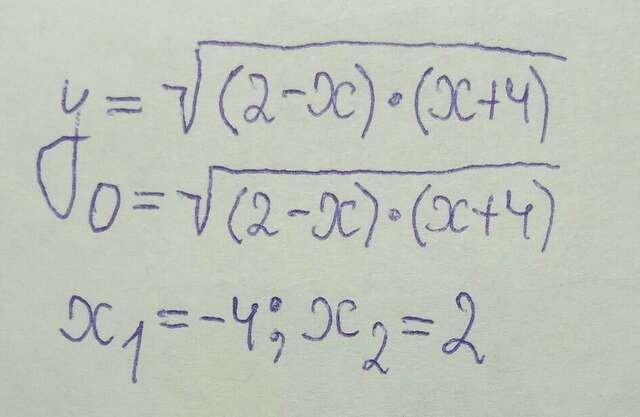 y = √(2-x)·(x+4)
0 = √(2-x)·(x+4)
x₁ = -4; x₂ = 2